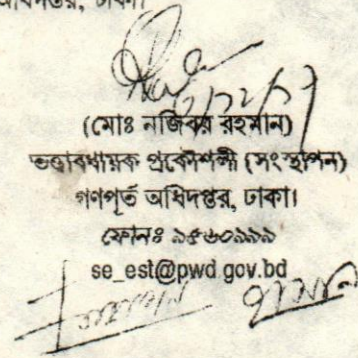 অধিদপ্তর, ঢাকা।
(মোঃ নজিবর রহমান)
তত্ত্বাবধায়ক প্রকৌশলী (সংস্থাপন)
গণপূর্ত অধিদপ্তর, ঢাকা।
ফোনঃ ৯৫৬০৯৯৯
se_est@pwd.gov.bd